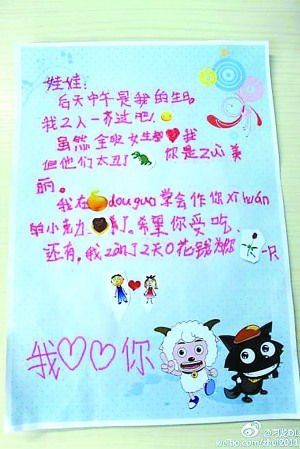 娃娃：
后天中午是我的生日
我2人一齐过吧！
虽然全班女生都❤我
但他们太丑了 你是Zui美
丽。
我在douguo学会作你xǐ huán
的小 力 了。希望你爱吃
还有，我 了2天0花钱为你 一只
我♡♡你
weibo.com/zhui2011